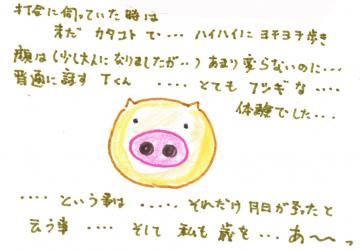 打合に伺っていた時は
まだ カタコト で ‥‥ ハイハイに ヨチヨチ歩き
顔は(少し大人になりましたが‥) あまり 変らないのに‥‥
普通に話す Tくん ‥‥ とても フシギな ‥‥
体験でした‥‥
‥‥ という事は ‥‥‥ それだけ 月日が 戻ったと
云う事 ‥‥‥ そして 私も 歳を‥‥ あ〜〜っ